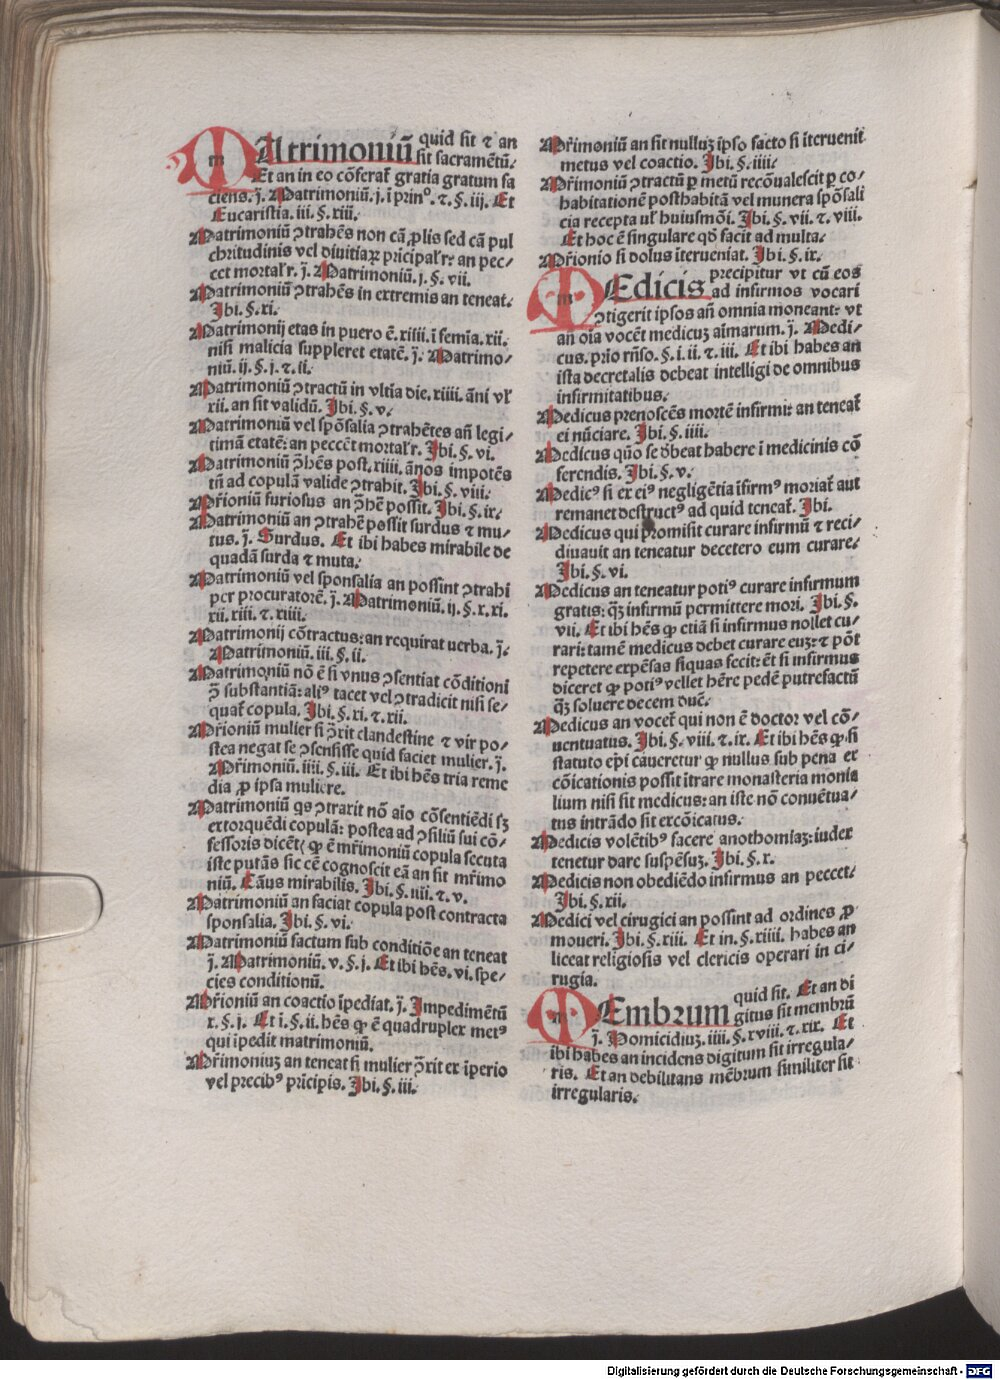 MAtrimoniū quid sit ⁊ an
sit sacramētū.
Et an in eo cōferat̄ gratia gratum fa
ciens. j̄. Matrimoniū. j. ī prin⁰. ⁊. §. iij. Et
Eucaristia. iii. §. xiii.
Matrimoniū ꝯtrahēs non cā ꝓlis sed cā pul
chritudinis vel diuitiaꝝ pricipal'r: an pec⸗
cet mortal'r. j̄. Matrimoniū. j. §. vii.
Matrimoniū ꝯtrahēs in extremis an teneat.
Ibi. §. xi.
Matrimonij etas in puero ē. xiiii. ī femia. xii.
nisi malicia suppleret etatē. j̄. Matrimo⸗
niū. ij. §. j. ⁊. ii.
Matrimoniū ꝯtractū in vltīa die. xiiii. āni vl'
xii. an sit validū. Ibi. §. v.
Matrimoniū vel spōsalia ꝯtrahētes añ legi⸗
timā etatē: an peccēt mortal'r. Ibi. §. vi.
Matrimoniū ꝯ̄hēs post. xiiii. ānos impotēs
tn̄ ad copulā valide ꝯtrahit. Ibi. §. viii.
Mr̄ioniū furiosus an ꝯ̄hē possit. Ibi. §. ix.
Matrimoniū an ꝯtrahē possit surdus ⁊ mu⸗
tus. j̄. Surdus. Et ibi habes mirabile de
quadā surda ⁊ muta.
Matrimoniū vel sponsalia an possint ꝯtrahi
per procuratorē. j̄. Matrimoniū. ij. §. x. xi.
xii. xiii. ⁊. xiiii.
Matrimonij cōtractus: an requirat uerba. j̄.
Matrimoniū. iii. §. ii.
Matrimoniū nō ē si vnus ꝯsentiat cōditioni
ꝯ̄ substantiā: aliꝰ tacet vel ꝯtradicit nisi se⸗
quat̄ copula. Ibi. §. xi. ⁊. xii.
Mr̄ioniū mulier si ꝯ̄xit clandestine ⁊ vir po⸗
stea negat se ꝯsensisse quid faciet mulier. j̄.
Mr̄imoniū. iiii. §. iii. Et ibi hēs tria reme
dia ꝓ ipsa muliere.
Matrimoniū qs ꝯtraxit nō aīo cōsentiēdi sꝫ
extorquēdi copulā: postea ad ꝯsiliū sui cō⸗
fessoris dicēt ꝙ ē mr̄imoniū copula secuta
iste putās sic eē cognoscit eā an sit mr̄imo
niū. Cāus mirabilis. Ibi. §. iiii. ⁊. v.
Matrimoniū an faciat copula post contracta
sponsalia. Ibi. §. vi.
Matrimoniū factum sub conditiōe an teneat
j̄. Matrimoniū. v. §. j. Et ibi hēs. vi. spe⸗
cies conditionū.
Mr̄ioniū an coactio īpediat. j̄. Impedimētū
x. §. j. Et ī. §. ii. hēs ꝙ ē quadruplex metꝰ
qui īpedit matrimoniū.
Mr̄imoniuꝫ an teneat si mulier ꝯ̄xit ex īperio
vel precibꝰ pricipis. Ibi. §. iii.
Mr̄imoniū an sit nulluꝫ ipso facto si īteruenit
metus vel coactio. Ibi. §. iiii.
Mr̄imoniū ꝯtractū ꝑ metū recōualescit ꝑ co⸗
habitationē posthabitā vel munera spōsali
cia recepta ul' huiusmōi. Ibi. §. vii. ⁊. viii.
Et hoc ē singulare qđ facit ad multa.
Mr̄ionio si dolus īterueniat. Ibi. §. ix.
MEdicis precipitur vt cū eos
ad infirmos vocari
ꝯtigerit ipsos añ omnia moneant: vt
añ oīa vocēt medicuꝫ aīmarum. j̄. Medi⸗
cus. prīo rn̄so. §. i. ii. ⁊. iii. Et ibi habes an
ista decretalis debeat intelligi de omnibus
infirmitatibus.
Medicus prenoscēs mortē infirmi: an teneat̄
ei nūciare. Ibi. §. iiii.
Medicus quō se dēbeat habere ī medicinis cō
ferendis. Ibi. §. v.
Medicꝰ si ex eiꝰ negligētia īfirmꝰ moriat̄ aut
remanet destructꝰ ad quid teneat̄. Ibi.
Medicus qui promisit curare infirmū ⁊ reci⸗
diuauit an teneatur decetero eum curare.
Ibi. §. vi.
Medicus an teneatur potiꝰ curare infirmum
gratis: q̄ꝫ infirmū permittere mori. Ibi. §.
vii. Et ibi hēs ꝙ etiā si infirmus nollet cu⸗
rari: tamē medicus debet curare euꝫ: ⁊ pōt
repetere expēsas siquas fecit: ēt si infirmus
diceret ꝙ potiꝰ vellet hēre pedē putrefactū
q̄ꝫ soluere decem duč.
Medicus an vocet̄ qui non ē doctor vel cō⸗
uentuatus. Ibi. §. viii. ⁊. ix. Et ibi hēs ꝙ si
statuto ep̄i caueretur ꝙ nullus sub pena ex
cōicationis possit ītrare monasteria monia
lium nisi sit medicus: an iste nō conuētua⸗
tus intrādo sit excōicatus.
Medicis volētibꝰ facere anothomiaꝫ: iudex
tenetur dare suspēsuꝫ. Ibi. §. x.
Medicis non obediēdo infirmus an peccet.
Ibi. §. xii.
Medici vel cirugici an possint ad ordines ꝓ
moueri. Ibi. §. xiii. Et in. §. xiiii. habes an
liceat religiosis vel clericis operari in ci⸗
rugia.
MEmbrum quid sit. Et an di
gitus sit membrū
j̄. Homicidiuꝫ. iiii. §. xviii. ⁊. xix. Et
ibi habes an incidens digitum sit irregula⸗
ris. Et an debilitans mēbrum similiter sit
irregularis.
Digitalisierung gefördert durch die Deutsche Forschungsgemeinschaft - DFG